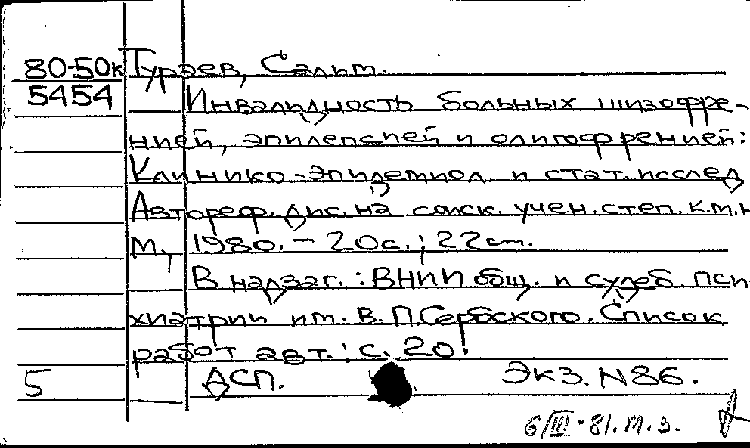 80-50к Тураев, Салим.
5454 Инвалидность больных шизофре-
нией, эпилепсией и олигофренией:
Клинико-эпидемиол. и стат. исслед.
Автореф. дис. на соиск. учен. степ. к.м.н
М., 1980. - 20с.; 22см.
В надзаг.: ВНИИ общ. и судеб. пси-
хиатрии им. В.П.Сербского. Список
работ авт.: с. 20.
5 ДСП. Экз. N86.
6/III-81. М.З.